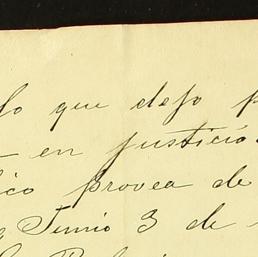 lo que dejo p
en justicia.
lico provea de
Junio 3 de